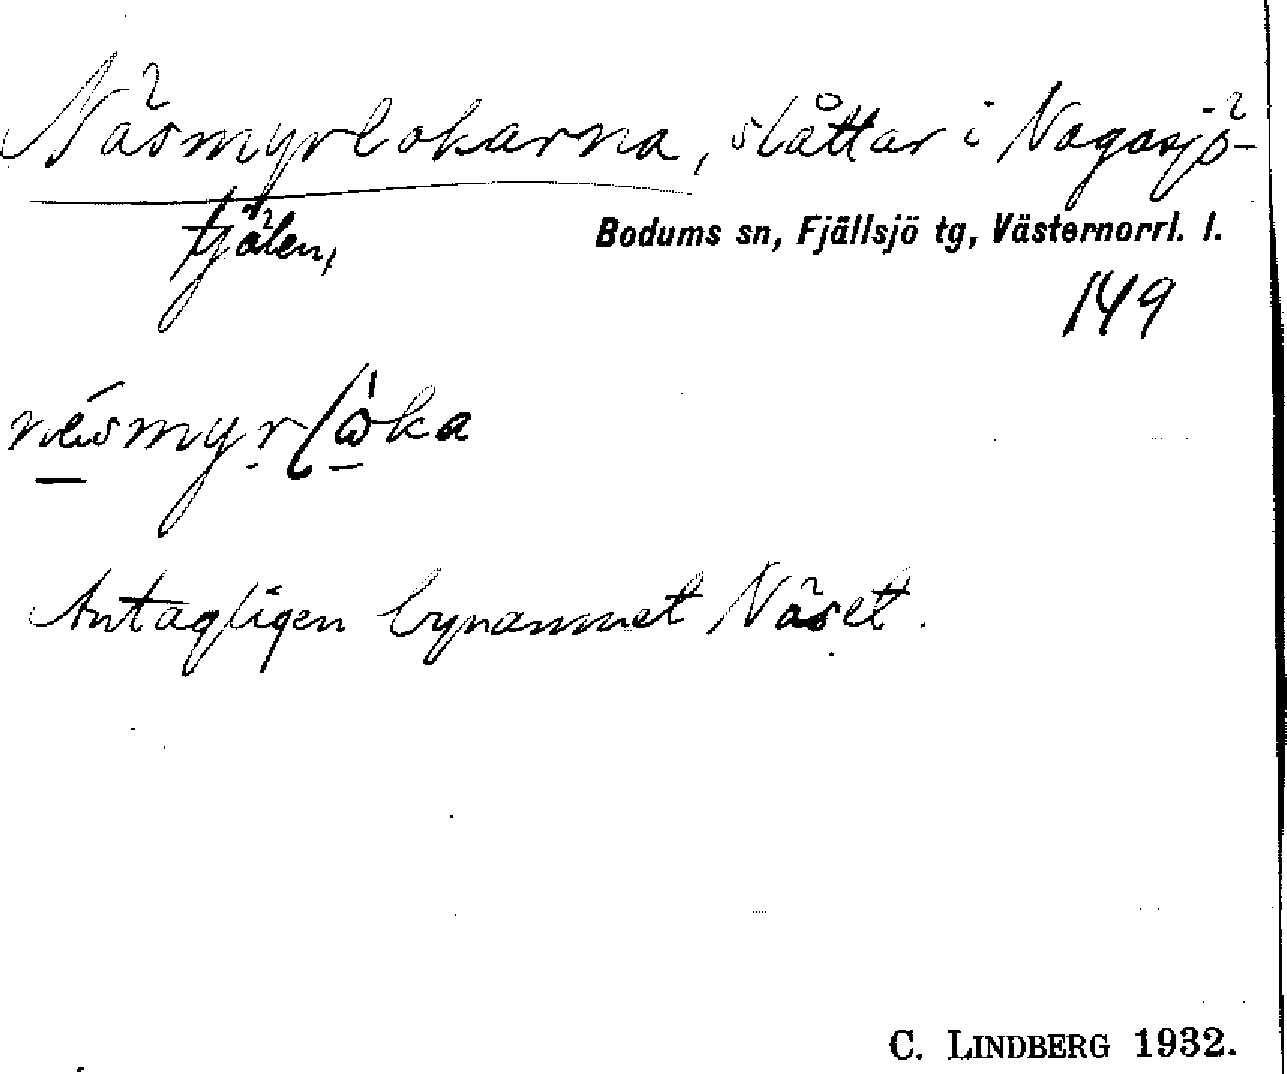 Näsmyrlokarna, slåttar i Vagasjö-
tjälen,
Bodums sn, Fjällsjö tg, Västernorrl. l.
149
Antagligen bynamnet Näset.
C. LINDBERG 1932.